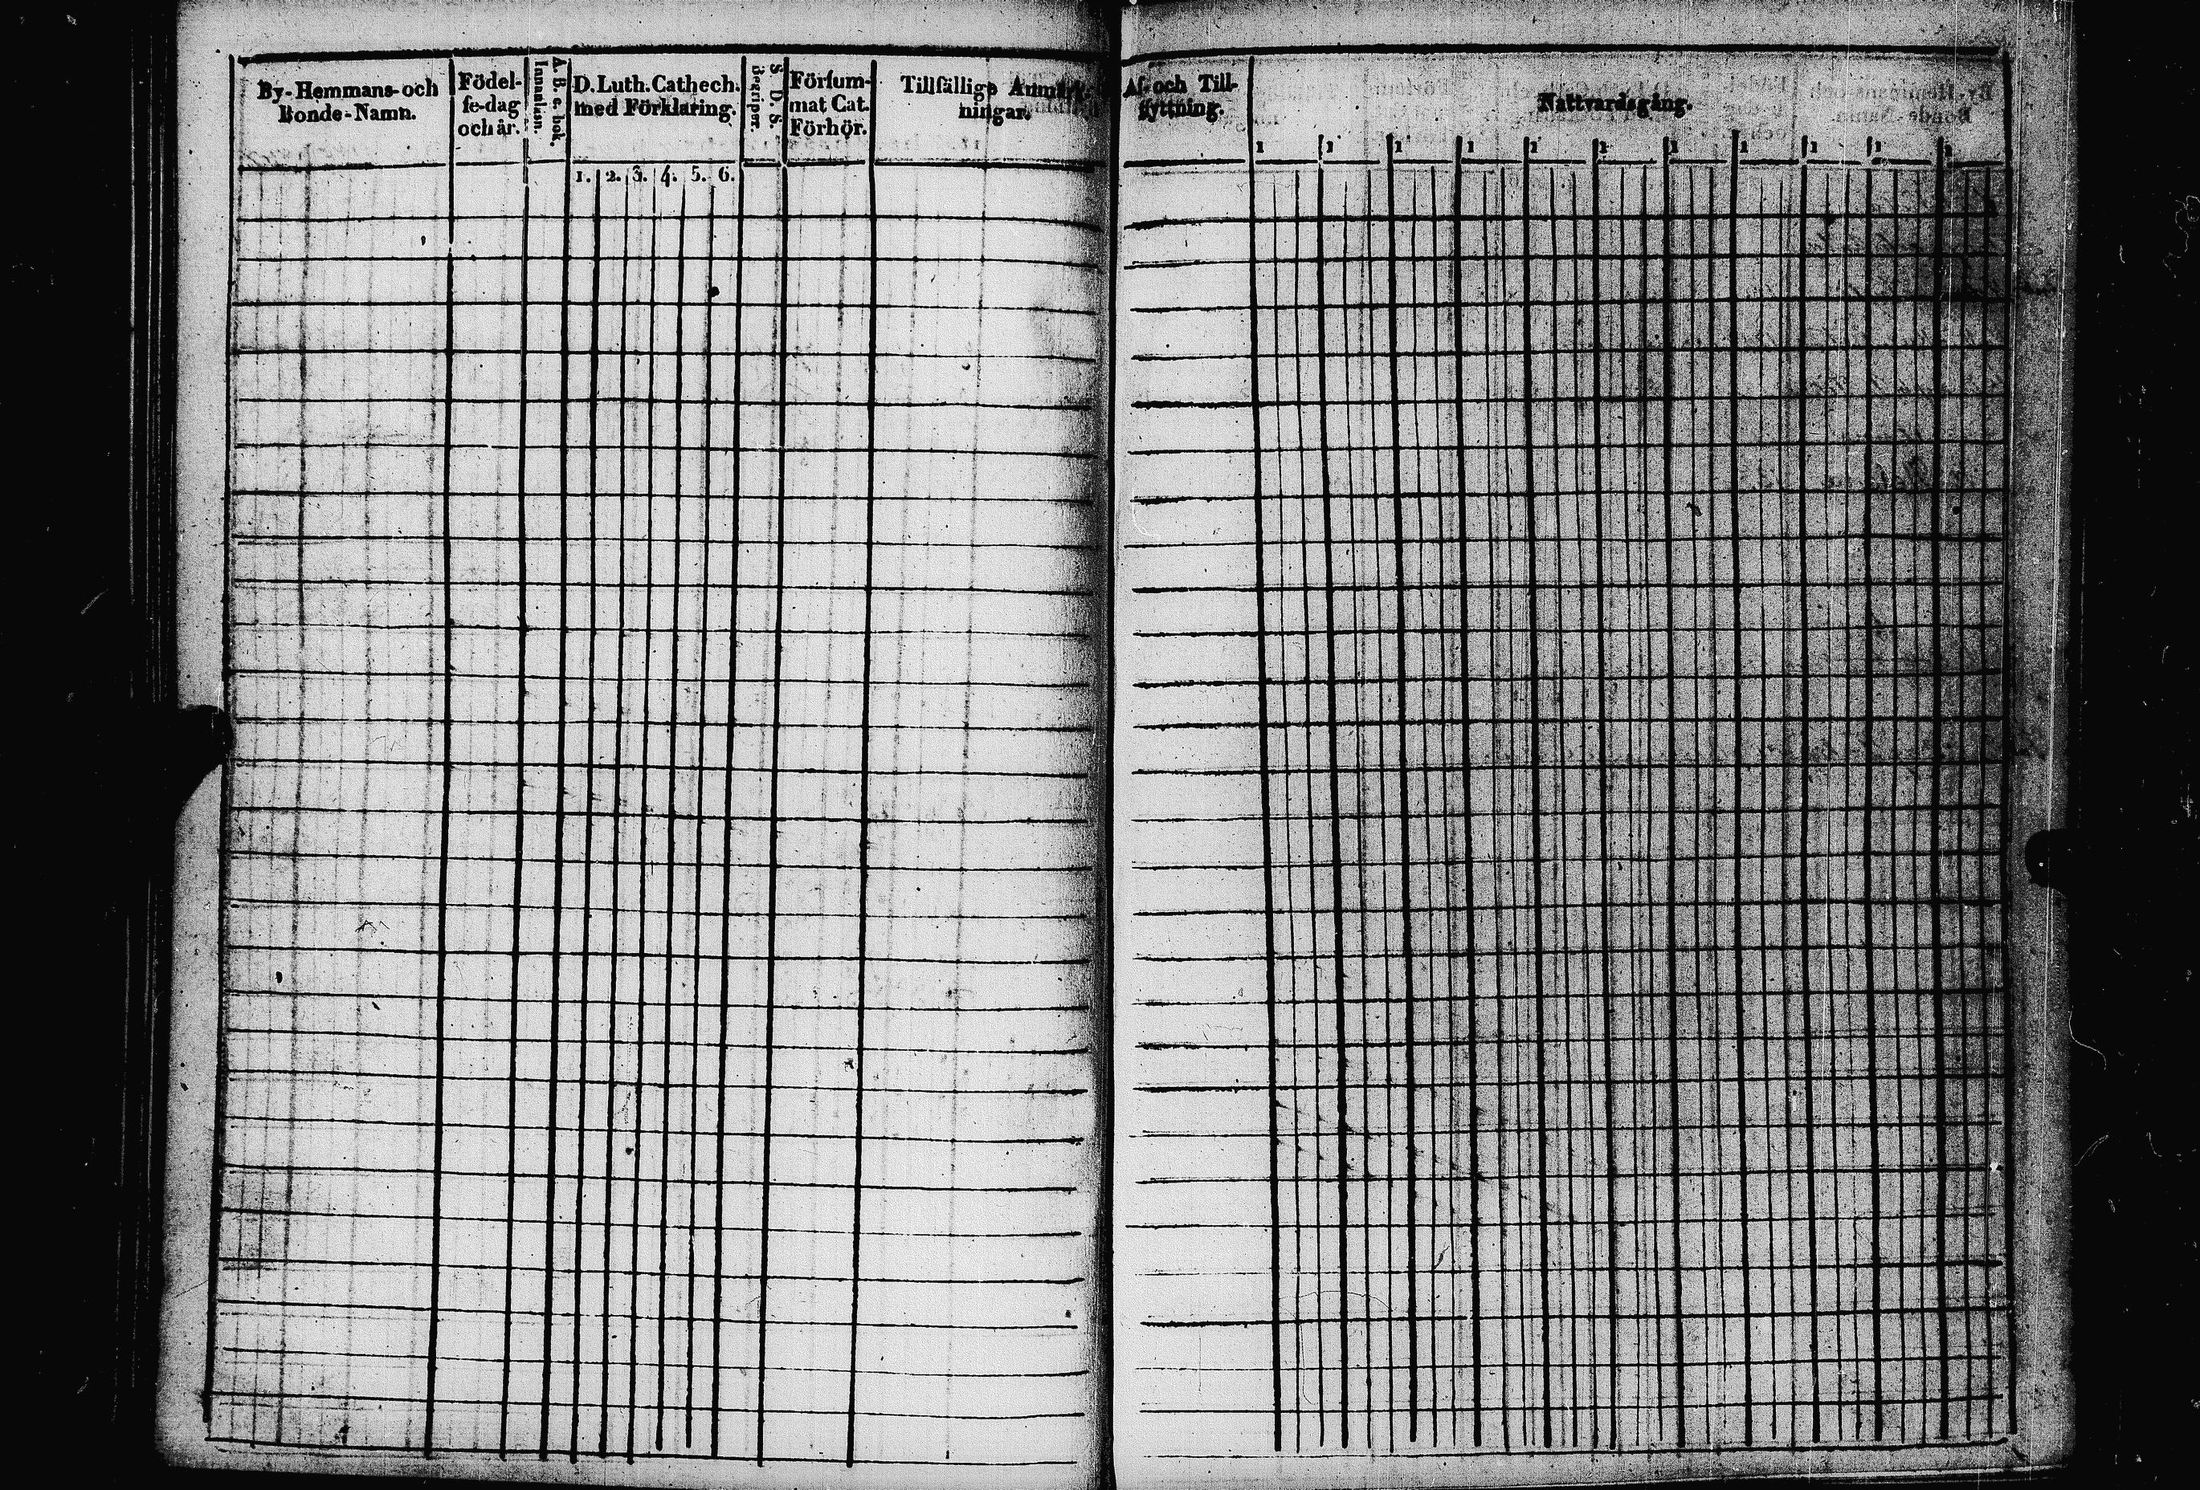 By-Hemmans- och
Bonde-Namn.
Födel-
ſe-dag
och år.
A. B. c. bok.
Innanläsn.
D. Luth. Cathech.
med Förklaring.
1. 2. 3. 4. 5. 6.
S. D. S.
Begriper.
Förſum-
mat Cat.
Förhör.
Tillfällige Anmärk-
ningar.
Af- och Till-
flyttning.
Nattvardsgång.
1 1 1 1 1 1 1 1 1 1 1